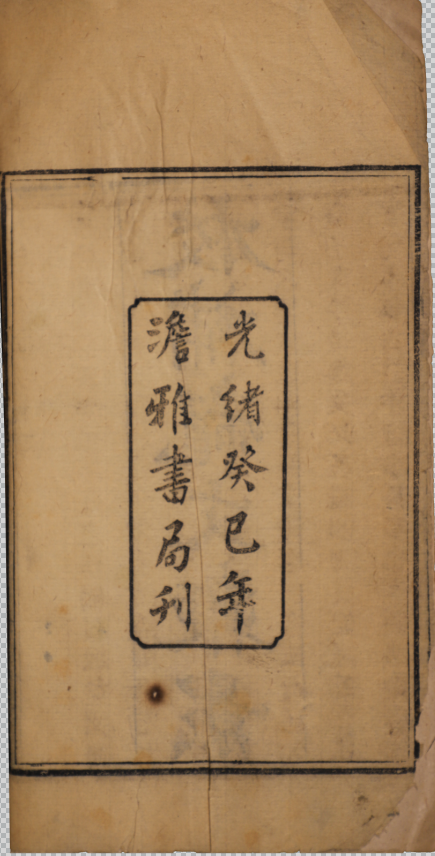 光緒癸巳年
澹雅書局刊